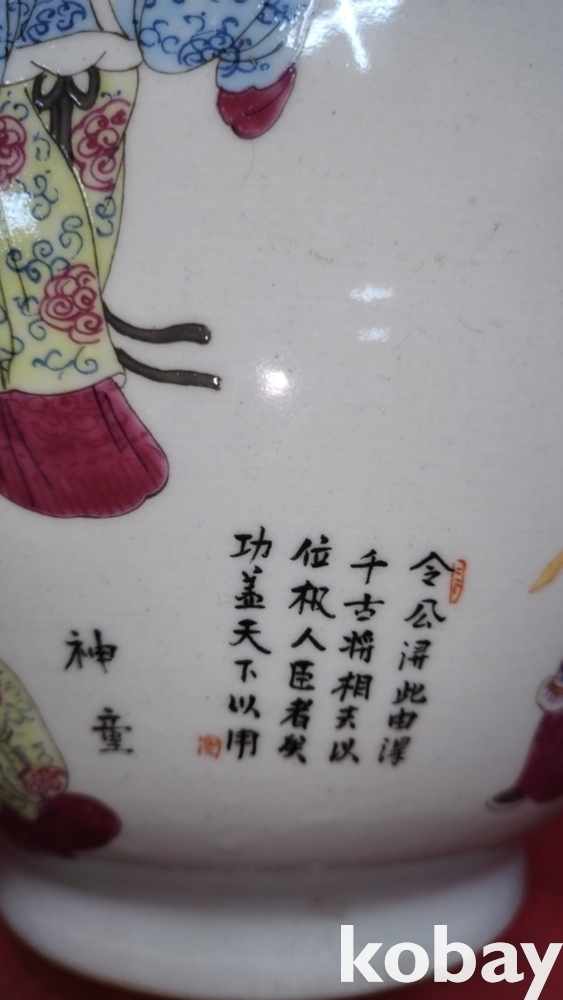 令公得此由得
千古将相夫以
位极人臣者矣
功盖天下以用
神童
kobay